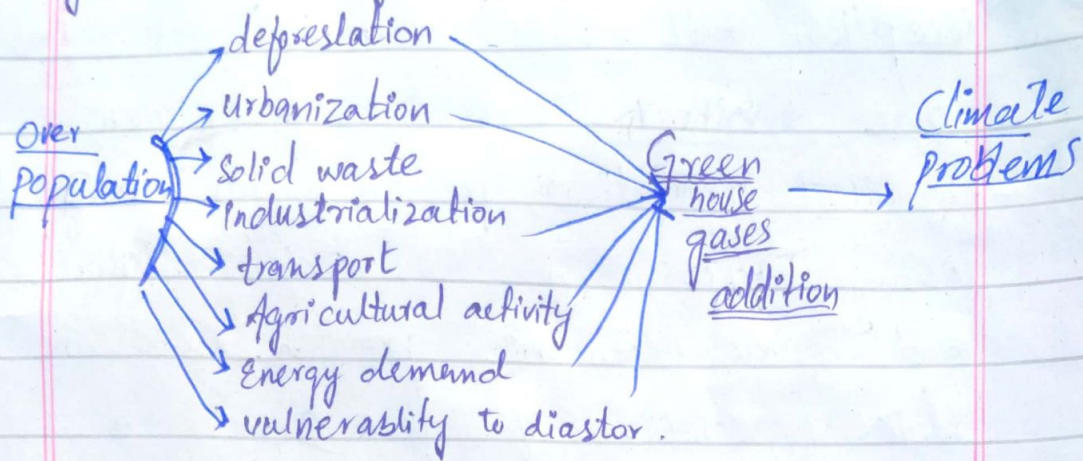 Over
population
deforestation
urbanization
Solid waste
industrialization
transport
Agricultural activity
Energy demand
vulnerablity to diastor.
Green
house
gases
addition
Climate
problems